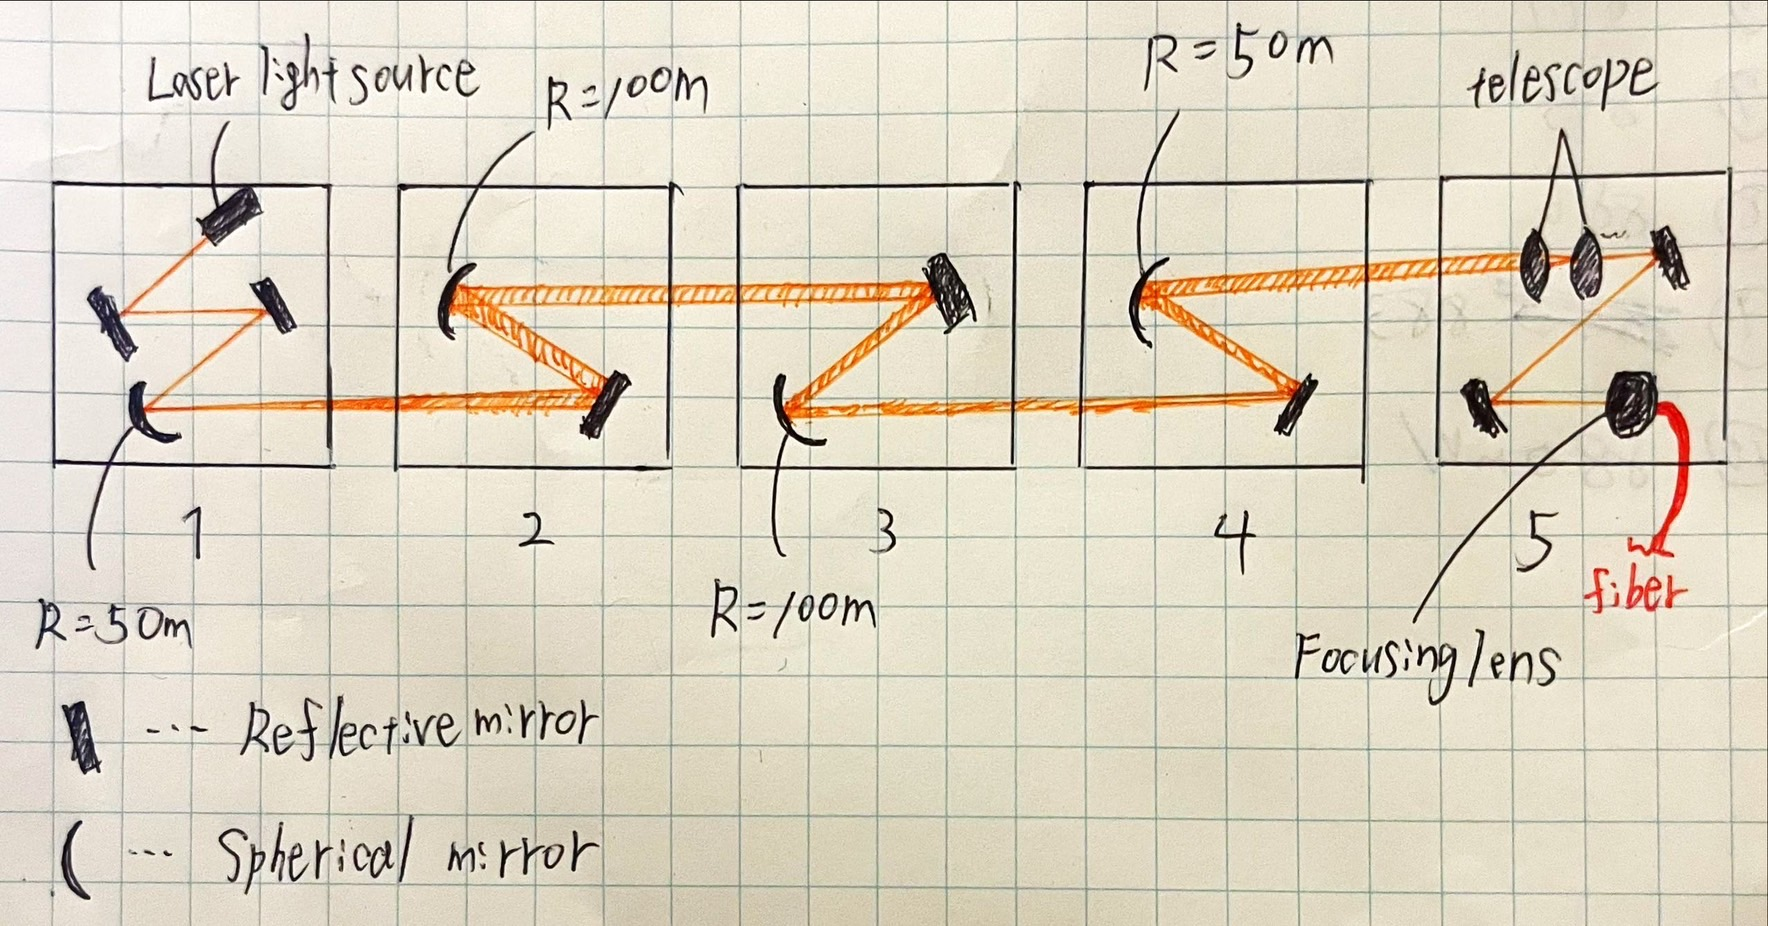 Laser light source
R=100m
R=50m
telescope
1
2
3
4
5
fiber
R=50m
R=100m
Focusing lens
... Reflective mirror
... Spherical mirror